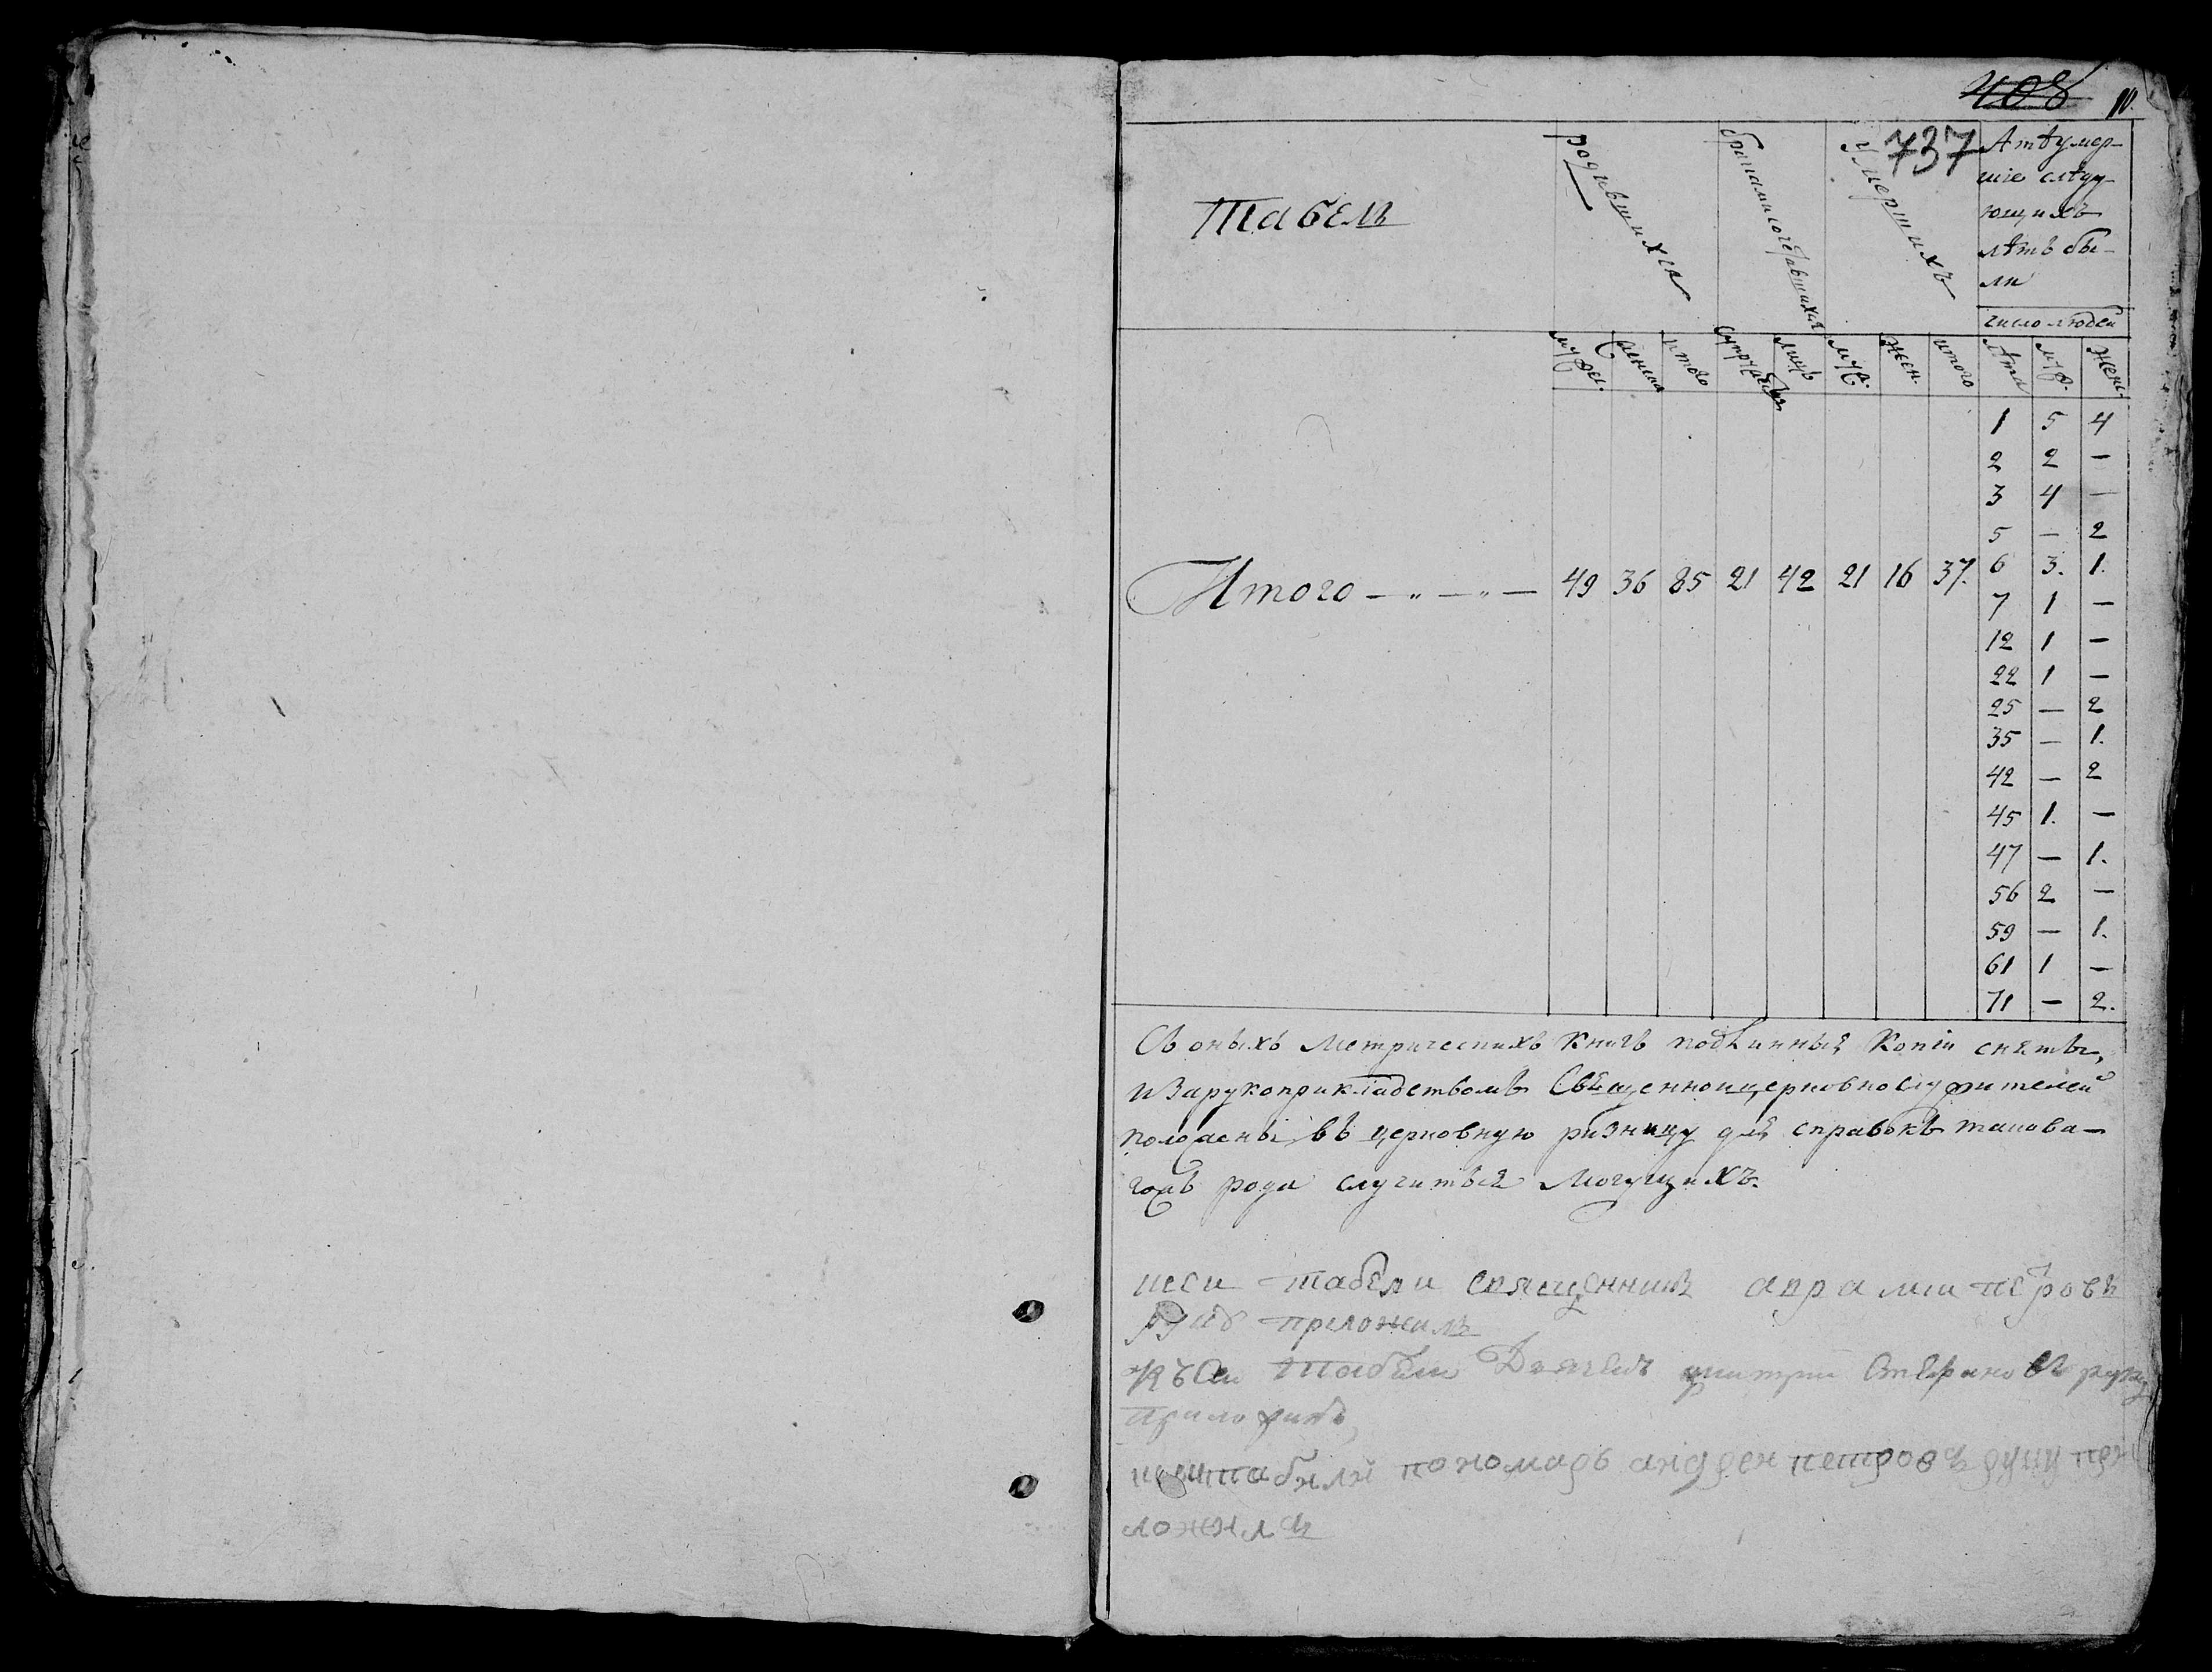 408
737
Табель
родившихся
бракомъ сочетавшихся
умершихъ
А тѣ умер-
шіе слѣду-
ющихъ
лѣтъ бы-
ли
число людей
муже.
женска
итого
супружествъ
лицъ
муж.
жен.
итого
лѣта
муж.
женс.
1 5 4
2 2 —
3 4 —
5 — 2
Итого — „ — „ — 49 36 85 21 42 21 16 37.
6 3. 1.
7 1 —
12 1 —
22 1 —
25 — 2
35 — 1.
42 — 2
45 1. —
47 — 1.
56 2 —
59 — 1.
61 1 —
71 — 2.
Съ оныхъ Метрическихъ Книгъ подлинныя Копіи сняты,
и Зарукоприкладствомъ Священноицерковнослужителей
положены въ церковную ризницу для справокъ такова-
гожъ рода случиться Могущихъ.
ксеи табели священникъ аврамии петровъ
руку преложилъ
къСеи табели Дьячекъ дмитрии Стефановъ руку
приложилъ
ксеи табели пономарь андреи петровъ руку при
ложилъ